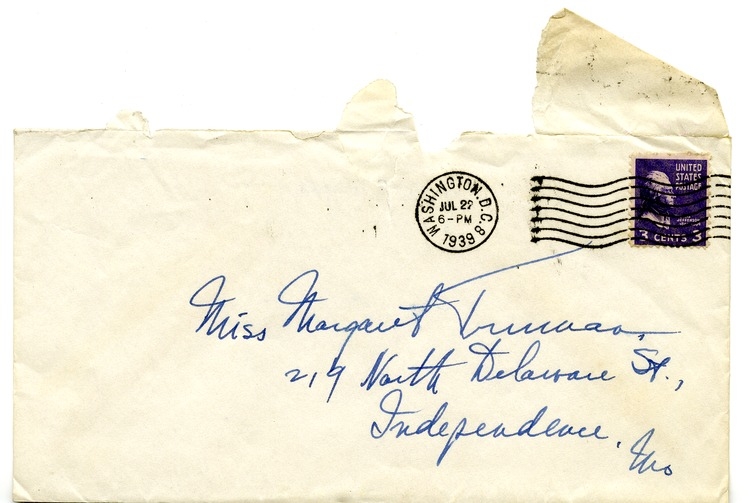 WASHINGTON, D.C. 8
JUL 22
6-PM
1939
UNITED
STATES
POSTAGE
3 CENTS 3
Miss Margaret Truman,
219 North Delaware St.,
Independence, Mo